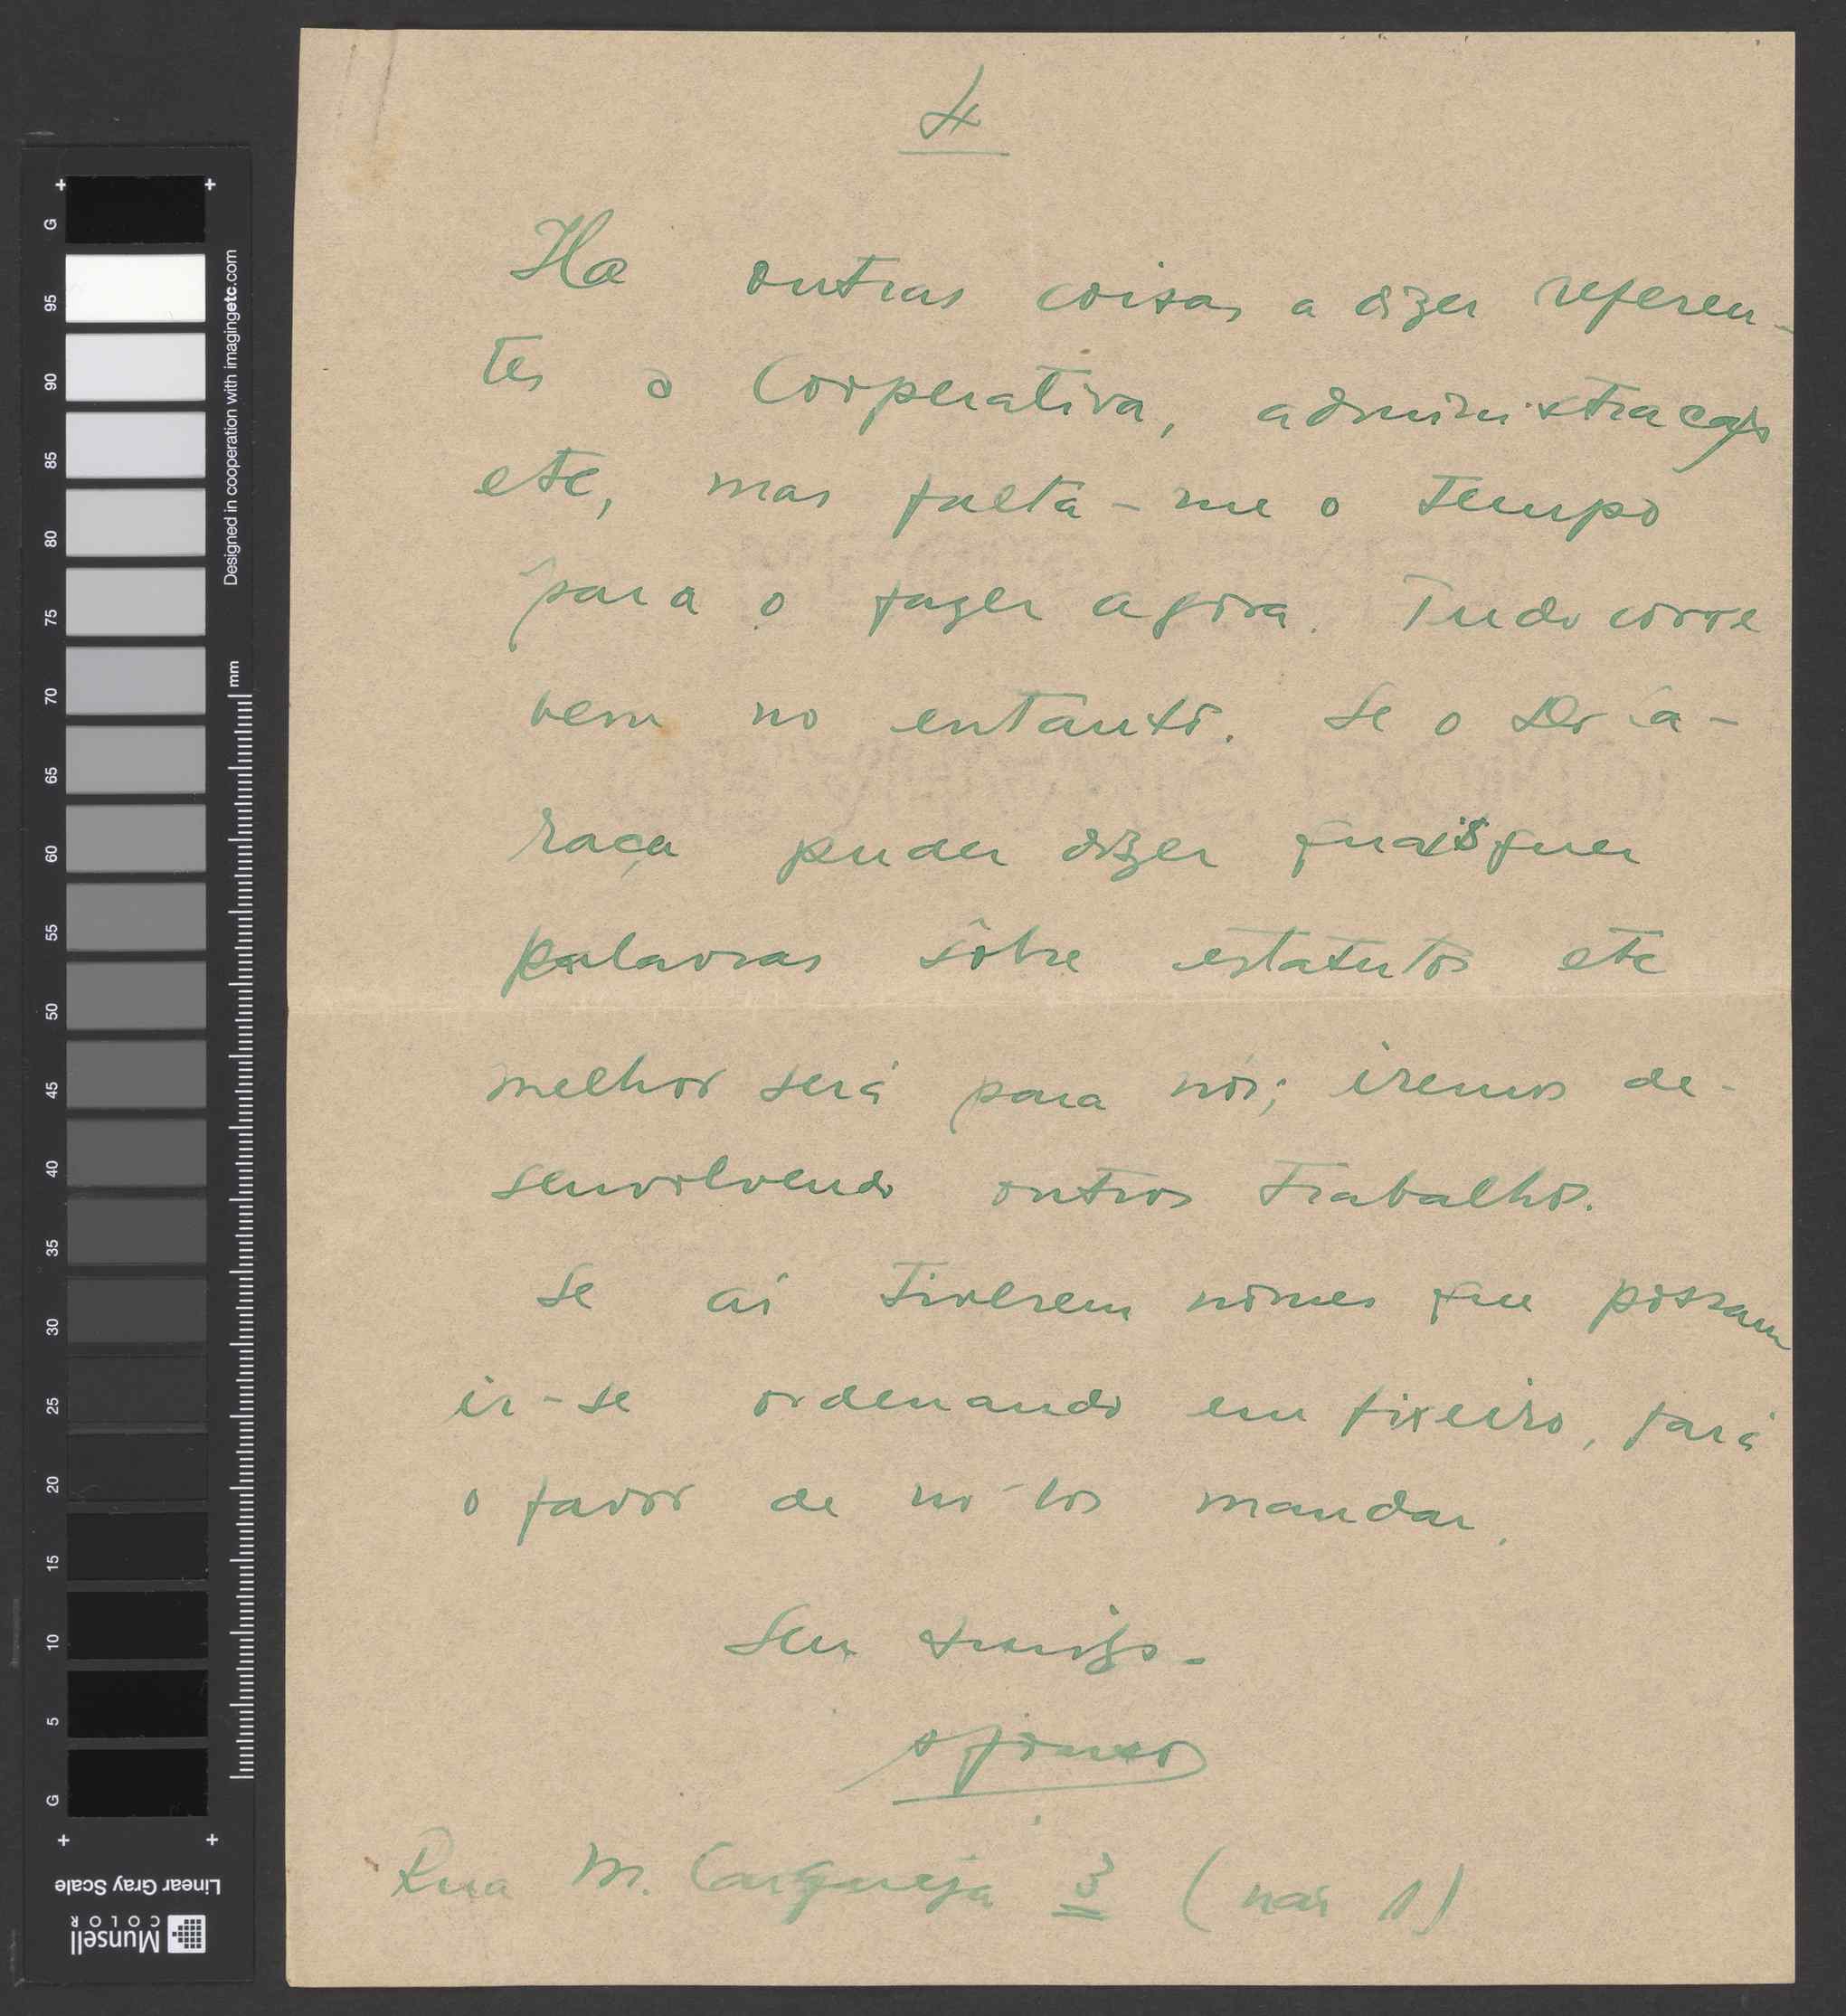 4
Ha outras coisas a dizer referen-
tes á Cooperativa, administração
etc, mas falta-me o tempo
para o fazer agora. Tudo corre
bem no entanto. Se o Dr Ca-
raça puder dizer quaisquer
palavras sôbre estatutos etc
melhor será para nós; iremos de-
senvolvendo outros trabalhos.
Se aí tiverem nomes que possam
ir-se ordenando em fixeiro, fará
o favor de no-los mandar.
Seu amigo.
Rua M. Carqueja 3 (não 1)
G
95
90
85
80
75
70
65
60
55
50
45
40
35
30
25
20
15
10
5
G
Designed in cooperation with imagingetc.com
mm
Linear Gray Scale
Munsell
COLOR